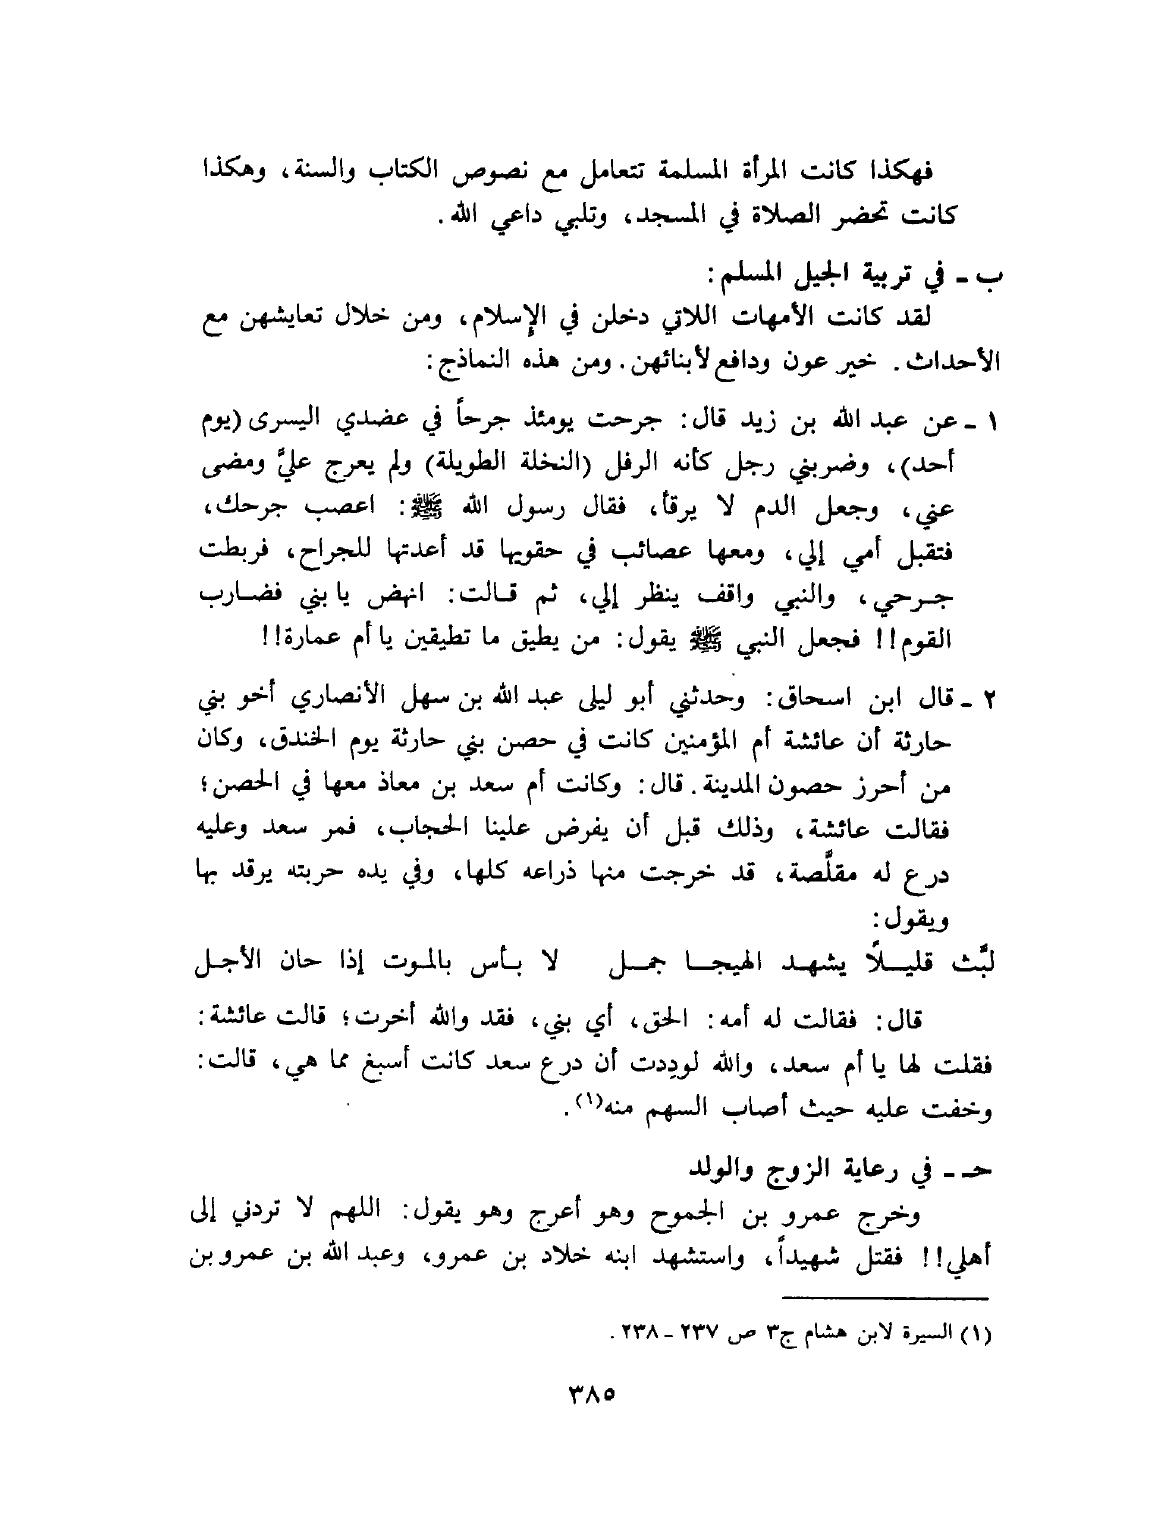 فهكذا كانت المرأة المسلمة تتعامل مع نصوص الكتاب والسنة، وهكذا
كانت تحضر الصلاة في المسجد، وتلبي داعي الله.
ب ـ في تربية الجيل المسلم:
لقد كانت الأمهات اللاتي دخلن في الإسلام، ومن خلال تعايشهن مع
الأحداث. خير عون ودافع لأبنائهن. ومن هذه النماذج:
١ ـ عن عبد الله بن زيد قال: جرحت يومئذ جرحاً في عضدي اليسرى (يوم
أحد)، وضربني رجل كأنه الرفل (النخلة الطويلة) ولم يعرج عليَّ ومضى
عني، وجعل الدم لا يرقأ، فقال رسول الله ﷺ: اعصب جرحك،
فتقبل أمي إلي، ومعها عصائب في حقويها قد أعدتها للجراح، فربطت
جرحي، والنبي واقف ينظر إلي، ثم قالت: انهض يا بني فضارب
القوم!! فجعل النبي ﷺ يقول: من يطيق ما تطيقين يا أم عمارة!!
٢ ـ قال ابن اسحاق: وحدثني أبو ليلى عبد الله بن سهل الأنصاري أخو بني
حارثة أن عائشة أم المؤمنين كانت في حصن بني حارثة يوم الخندق، وكان
من أحرز حصون المدينة. قال: وكانت أم سعد بن معاذ معها في الحصن؛
فقالت عائشة، وذلك قبل أن يفرض علينا الحجاب، فمر سعد وعليه
درع له مقلَّصة، قد خرجت منها ذراعه كلها، وفي يده حربته يرقد بها
ويقول:
لبَّث قليلاً يشهد الهيجا جمل لا بأس بالموت إذا حان الأجل
قال: فقالت له أمه: الحق، أي بني، فقد والله أخرت؛ قالت عائشة:
فقلت لها يا أم سعد، والله لوددت أن درع سعد كانت أسبغ مما هي، قالت:
وخفت عليه حيث أصاب السهم منه(١).
حـ ـ في رعاية الزوج والولد
وخرج عمرو بن الجموح وهو أعرج وهو يقول: اللهم لا تردني إلى
أهلي!! فقتل شهيداً، واستشهد ابنه خلاد بن عمرو، وعبد الله بن عمرو بن
(١) السيرة لابن هشام ج٣ ص ٢٣٧ ـ ٢٣٨.
٣٨٥